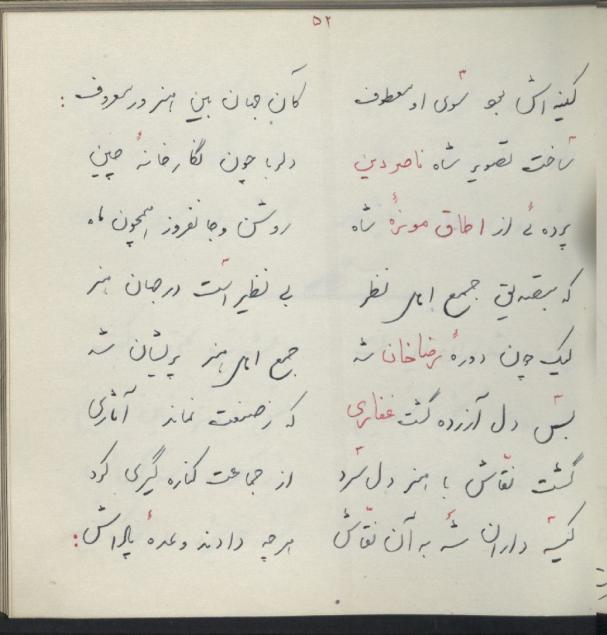 ۵۲
کینه اش بجو سوی او معطوف کان جهان بین هنرور معروف :
ساخت تصویر شاه ناصردین دلربا چون نگارخانهٔ چین
پرده ئی از اطاق موزهٔ شاه روشن و جانفروز همچون ماه
که بتصدیق جمع اهل نظر بی نظیر است در جهان هنر
لیک چون دورهٔ رضاخان شد جمع اهل هنر پریشان شد
بس دل آزرده گشت غفاری که ز صنعت نماند آثاری
گشت نقّاش با هنر دلسرد از جماعت کناره گیری کرد
کیسه داران شه به آن نقّاش هرچه دادند وعدهٔ پاداش :